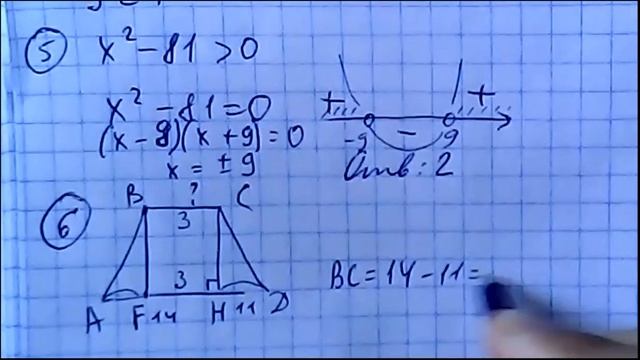 5 x² - 81 > 0
x² - 81 = 0
(x - 9)(x + 9) = 0
x = ± 9
+ - +
-9 9
Отв: 2
6
B ? C
3
3
A F 14 H 11 D
BC = 14 - 11 =